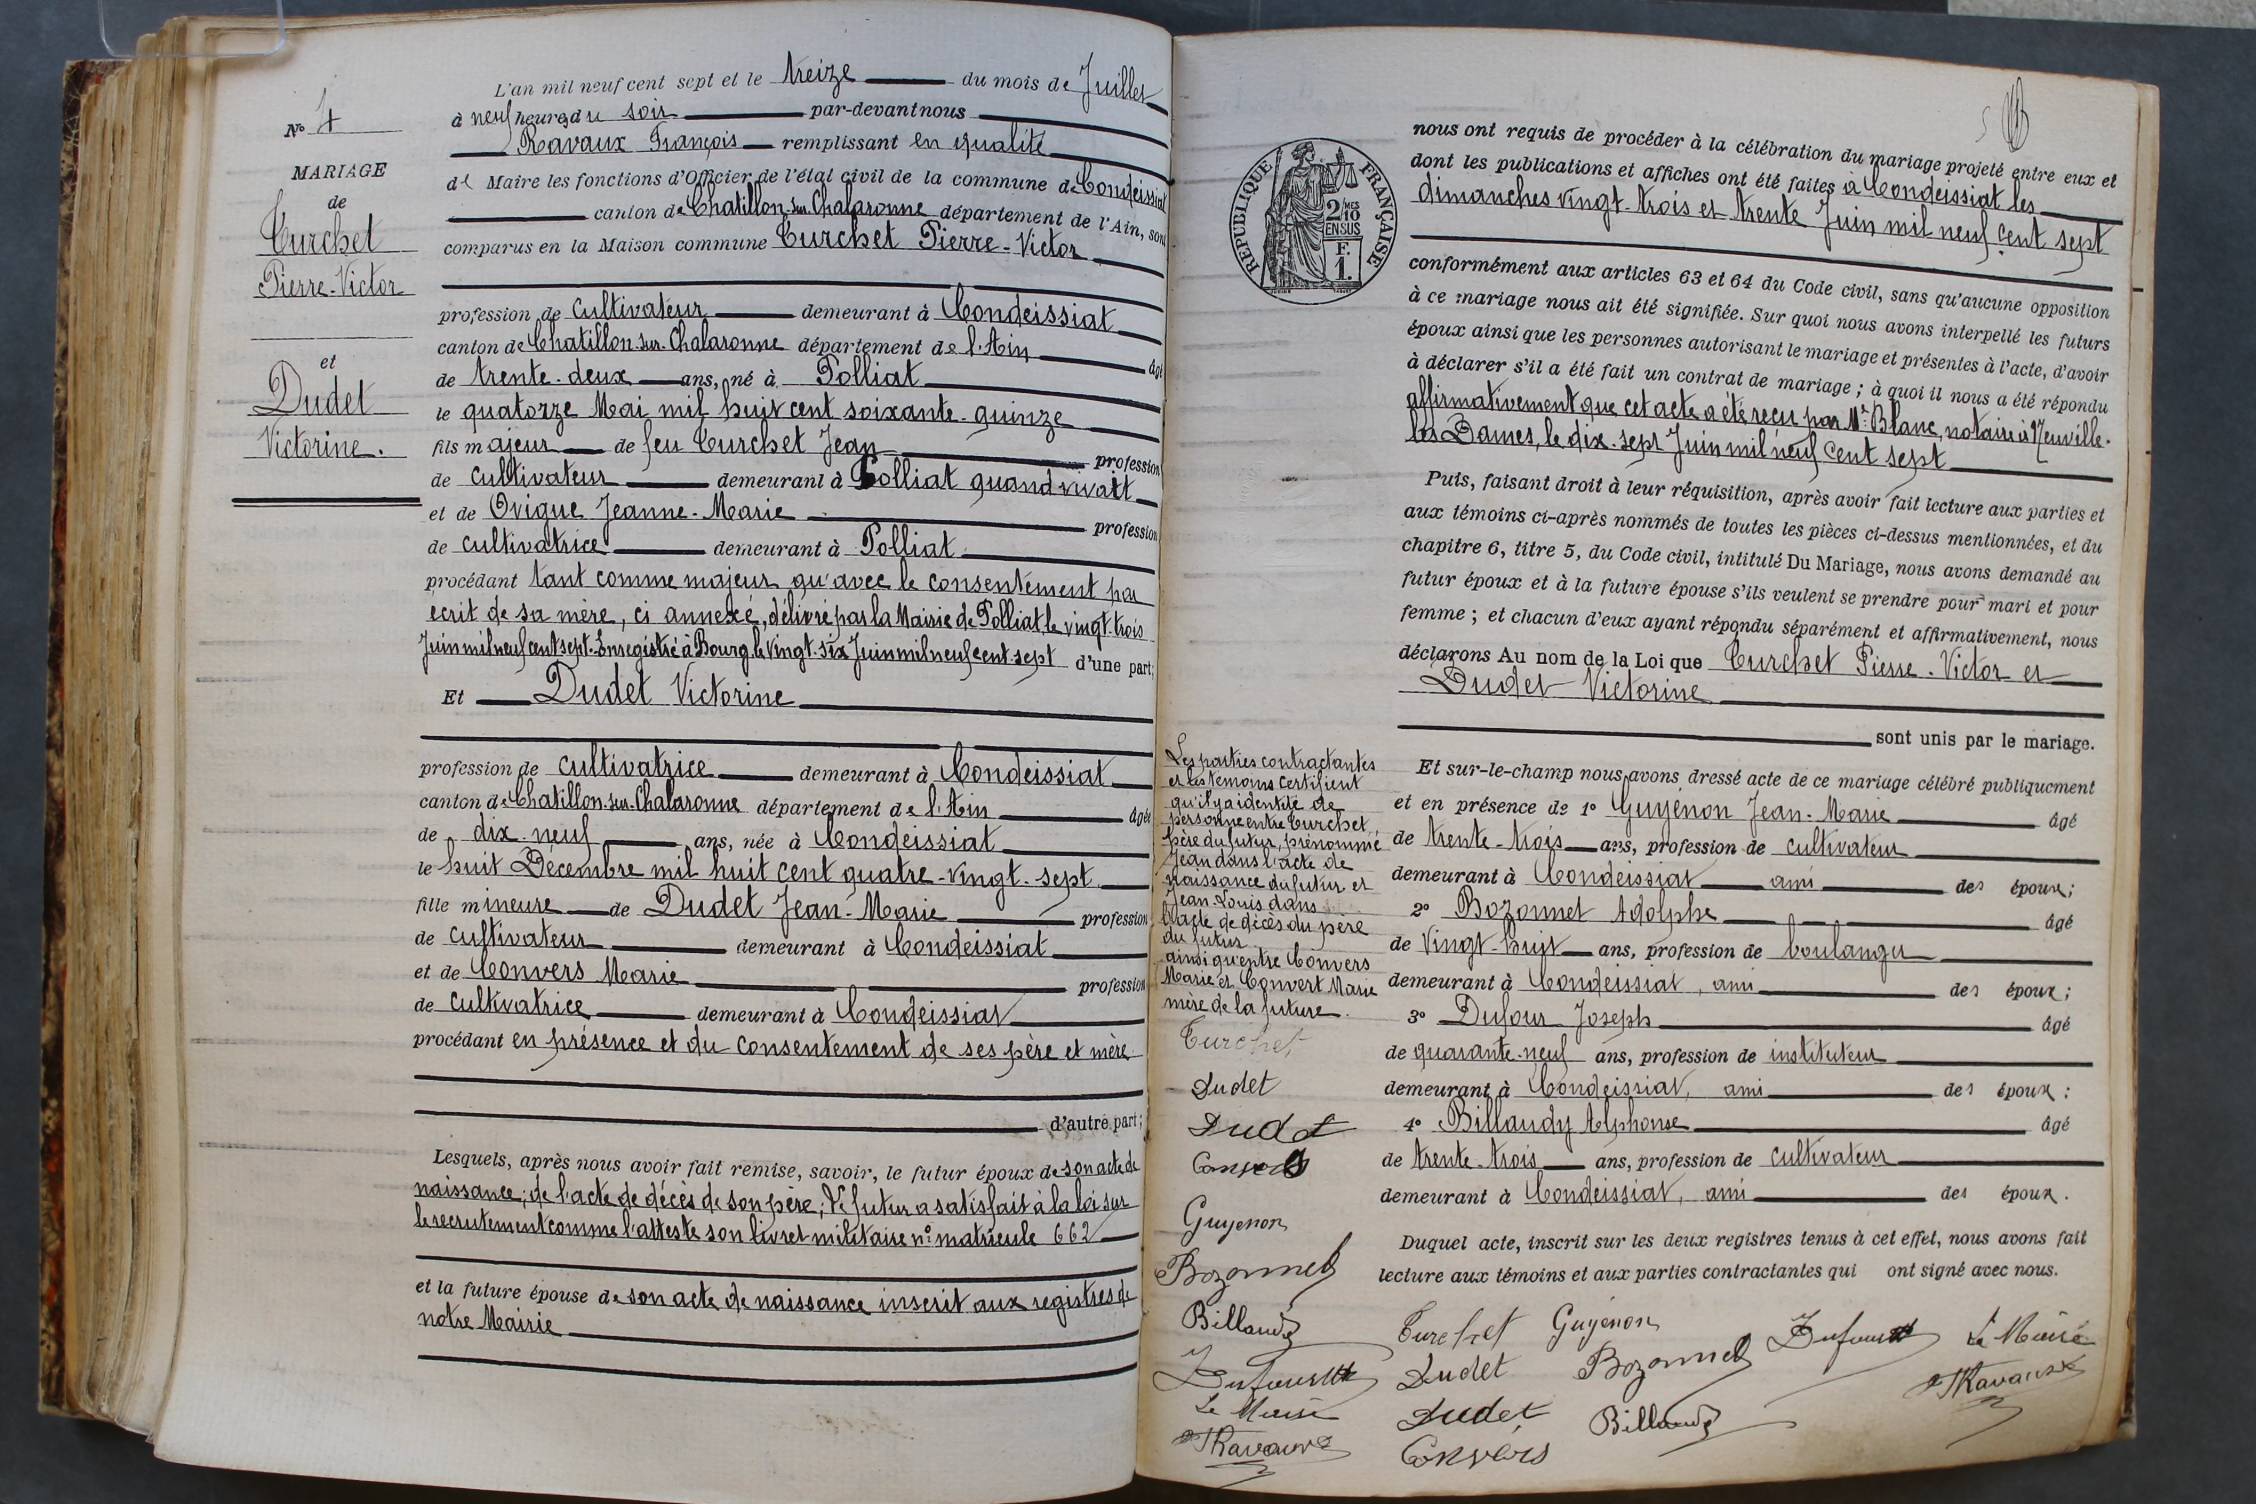 N° 4
MARIAGE
de
Turchet
Pierre-Victor
et
Dudet
Victorine.
L'an mil neuf cent sept et le treize du mois de Juillet
à neuf heures du soir par-devant nous
Ravaux François remplissant en qualité
de Maire les fonctions d'Officier de l'état civil de la commune de Condeissiat
canton de Chatillon-sur-Chalaronne département de l'Ain, sont
comparus en la Maison commune Turchet Pierre-Victor
profession de cultivateur demeurant à Condeissiat
canton de Chatillon-sur-Chalaronne département de l'Ain âgé
de trente-deux ans, né à Polliat
le quatorze Mai mil huit cent soixante-quinze
fils majeur de feu Turchet Jean profession
de cultivateur demeurant à Polliat quand vivait
et de Ovigue Jeanne-Marie profession
de cultivatrice demeurant à Polliat
procédant tant comme majeur qu'avec le consentement par
écrit de sa mère, ci annexé, délivré par la Mairie de Polliat, le vingt-trois
Juin mil neuf cent sept. Enregistré à Bourg le vingt-six Juin mil neuf cent sept d'une part;
Et Dudet Victorine
profession de cultivatrice demeurant à Condeissiat
canton de Chatillon-sur-Chalaronne département de l'Ain âgée
de dix-neuf ans, née à Condeissiat
le huit Décembre mil huit cent quatre-vingt-sept
fille mineure de Dudet Jean-Marie profession
de cultivateur demeurant à Condeissiat
et de Convers Marie profession
de cultivatrice demeurant à Condeissiat
procédant en présence et du consentement de ses père et mère
d'autre part;
Lesquels, après nous avoir fait remise, savoir, le futur époux de son acte de
naissance; de l'acte de décès de son père; le futur a satisfait à la loi sur
le recrutement comme l'atteste son livret militaire n° matricule 662
et la future épouse de son acte de naissance inscrit aux registres de
notre Mairie
RÉPUBLIQUE FRANÇAISE
2/10 MES
EN SUS
F.
1.
nous ont requis de procéder à la célébration du mariage projeté entre eux et
dont les publications et affiches ont été faites à Condeissiat les
dimanches vingt-trois et trente Juin mil neuf cent sept
conformément aux articles 63 et 64 du Code civil, sans qu'aucune opposition
à ce mariage nous ait été signifiée. Sur quoi nous avons interpellé les futurs
époux ainsi que les personnes autorisant le mariage et présentes à l'acte, d'avoir
à déclarer s'il a été fait un contrat de mariage; à quoi il nous a été répondu
affirmativement que cet acte a été reçu par Mr Blanc, notaire à Neuville-
les Dames, le dix-sept Juin mil neuf cent sept
Puis, faisant droit à leur réquisition, après avoir fait lecture aux parties et
aux témoins ci-après nommés de toutes les pièces ci-dessus mentionnées, et du
chapitre 6, titre 5, du Code civil, intitulé Du Mariage, nous avons demandé au
futur époux et à la future épouse s'ils veulent se prendre pour mari et pour
femme; et chacun d'eux ayant répondu séparément et affirmativement, nous
déclarons Au nom de la Loi que Turchet Pierre-Victor et
Dudet Victorine
sont unis par le mariage.
Et sur-le-champ nous avons dressé acte de ce mariage célébré publiquement
et en présence de 1° Guyénon Jean-Marie âgé
de trente-trois ans, profession de cultivateur
demeurant à Condeissiat ami des époux;
2° Bozonnet Adolphe âgé
de vingt-huit ans, profession de boulanger
demeurant à Condeissiat, ami des époux;
3° Dufour Joseph âgé
de quarante-neuf ans, profession de instituteur
demeurant à Condeissiat, ami des époux:
4° Billaudy Alphonse âgé
de trente-trois ans, profession de cultivateur
demeurant à Condeissiat, ami des époux.
Duquel acte, inscrit sur les deux registres tenus à cet effet, nous avons fait
lecture aux témoins et aux parties contractantes qui ont signé avec nous.
Les parties contractantes
et les témoins certifient
qu'il y a identité de
personne entre Turchet,
père du futur, prénommé
Jean dans l'acte de
naissance du futur et
Jean-Louis dans
l'acte de décès du père
du futur
ainsi qu'entre Convers
Marie et Convert Marie
mère de la future.
Turchet
Dudet
Dudet
Convers
Guyenon
Bozonnet
Billaudy
Dufour
Le Maire
Ravaux
Turchet Guyénon Dufour Le Maire
Dudet Bozonnet Ravaux
Dudet Billaudy
Convers